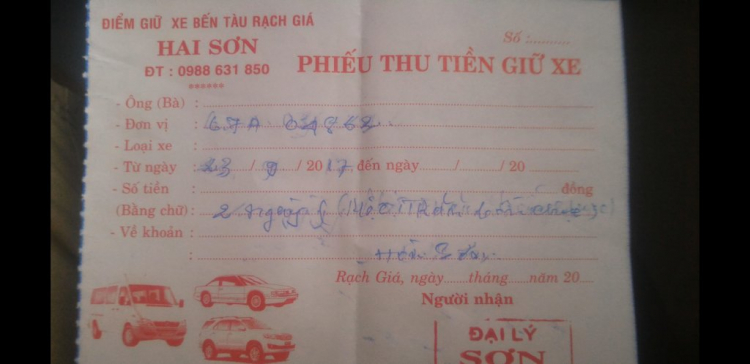 ĐIỂM GIỮ XE BẾN TÀU RẠCH GIÁ
HAI SƠN
ĐT : 0988 631 850
******
Số :...........
PHIẾU THU TIỀN GIỮ XE
- Ông (Bà) :
- Đơn vị : 67A
- Loại xe :
- Từ ngày : 23 / 9 / 2017 đến ngày / / 20
- Số tiền : đồng
(Bằng chữ) : 2 ngày
- Về khoản :
Rạch Giá, ngày tháng năm 20
Người nhận
ĐẠI LÝ
SƠN